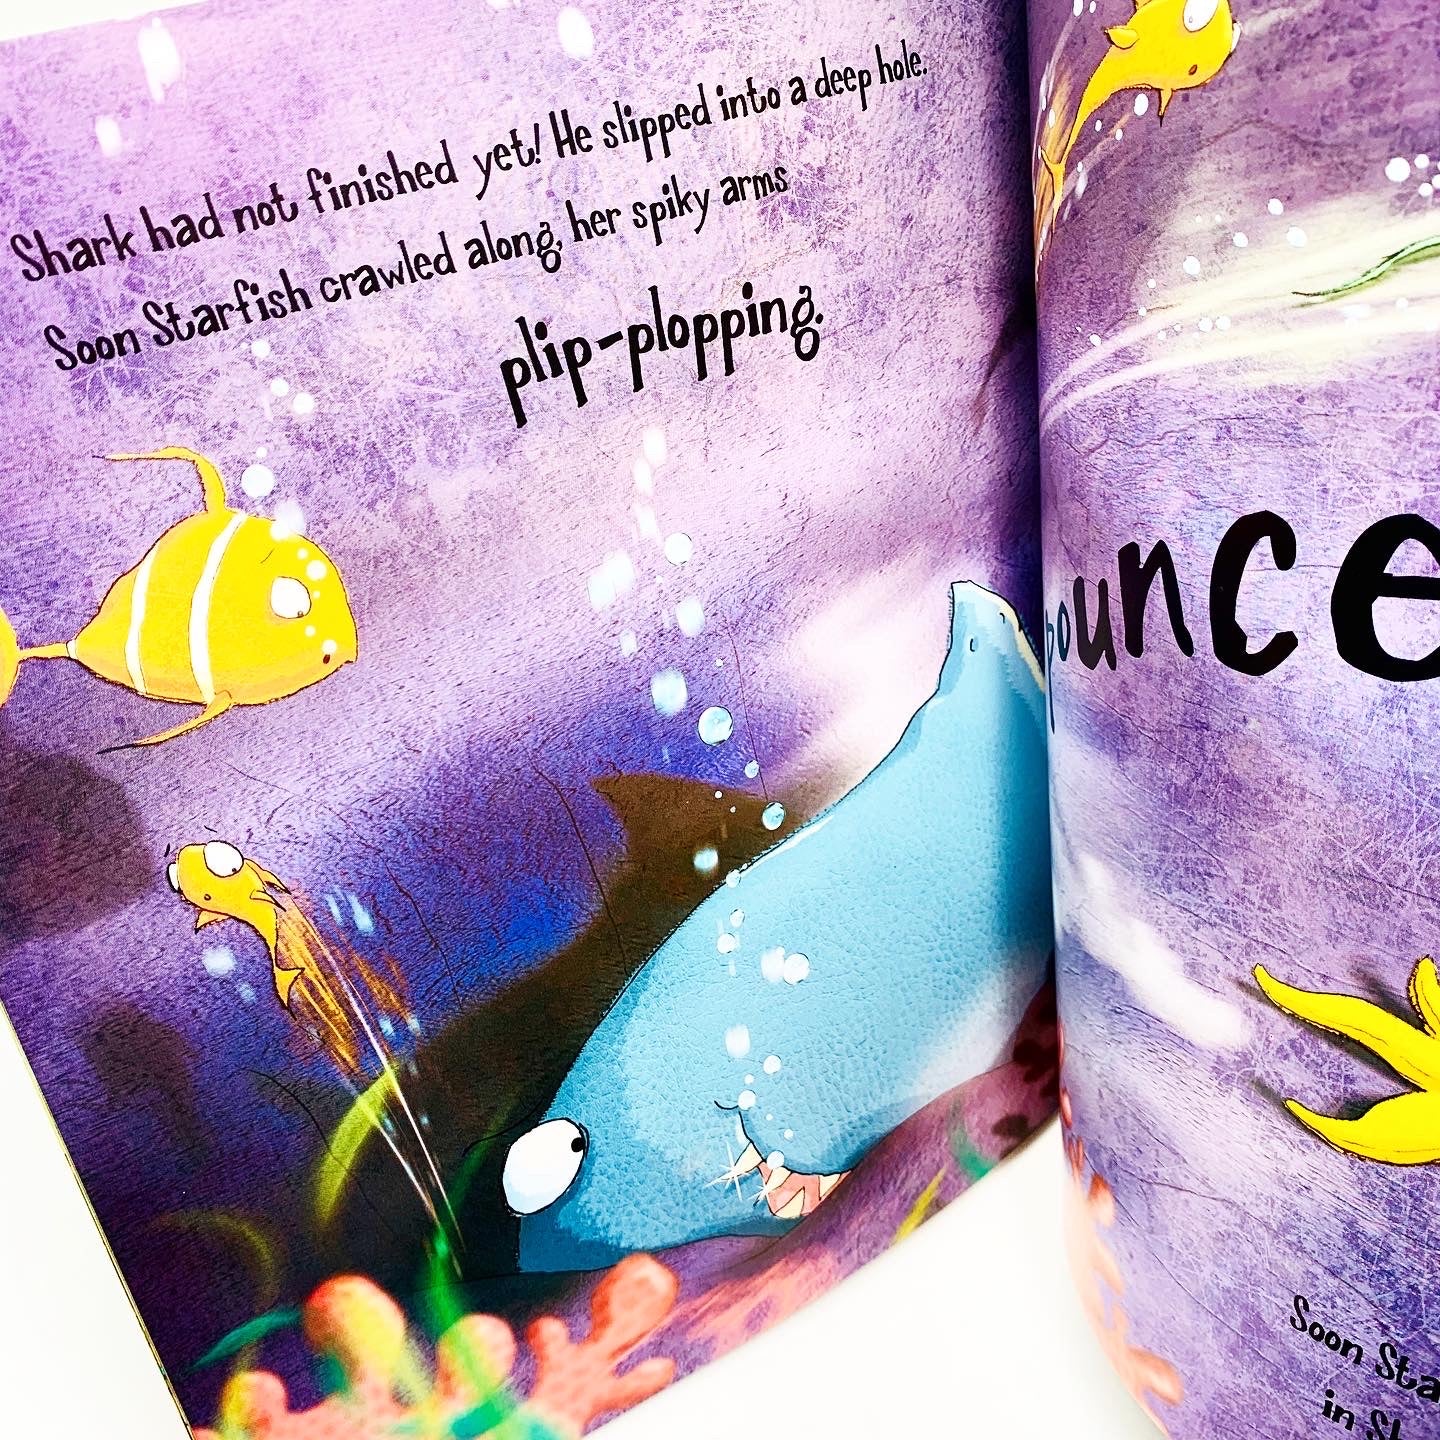 Shark had not finished yet! He slipped into a deep hole.
Soon Starfish crawled along, her spiky arms
plip-plopping.
pounce
Soon Sta
in S